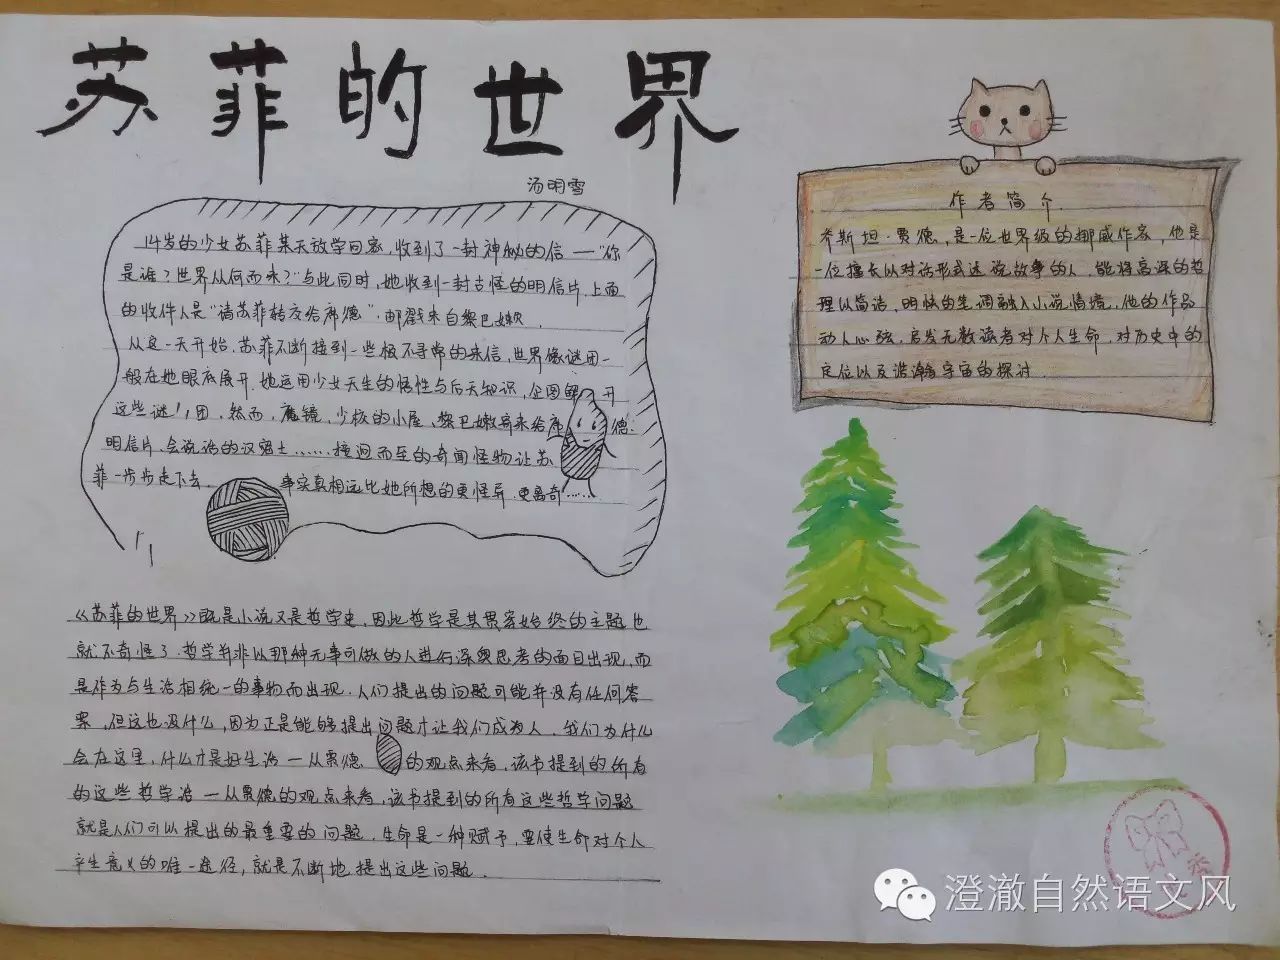 苏菲的世界
汤明雪
14岁的少女苏菲某天放学回家，收到了一封神秘的信——"你
是谁？世界从何而来？"与此同时，她收到一封古怪的明信片，上面
的收件人是"请苏菲转交给席德"，邮戳来自黎巴嫩．
从这一天开始，苏菲不断接到一些极不寻常的来信，世界像谜团一
般在她眼底展开．她运用少女天生的悟性与后天知识，企图解开
这些谜团，然而，魔镜，少校的小屋、黎巴嫩寄来给席德
明信片，会说话的汉密士……接迥而至的奇闻怪物让苏
菲一步步走下去．事实真相远比她所想的更怪异．更离奇……
《苏菲的世界》既是小说又是哲学史，因此哲学是其贯穿始终的主题也
就不奇怪了．哲学并非以那种无事可做的人进行深奥思考的面目出现，而
是作为与生活相统一的事物而出现．人们提出的问题可能并没有任何答
案，但这也没什么，因为正是能够提出问题才让我们成为人．我们为什么
会在这里，什么才是好生活一从贾德的观点来看，该书提到的所有
的这些哲学 一从贾德的观点来看，该书提到的所有这些哲学问题
就是人们可以提出的最重要的问题．生命是一种赋予，要使生命对个人
产生意义的唯一途径，就是不断地提出这些问题．
作者简介
乔斯坦·贾德，是一位世界级的挪威作家，他是
一位擅长以对话形式述说故事的人，能将高深的哲
理以简洁、明快的笔调融入小说情境，他的作品
动人心弦，启发无数读者对个人生命，对历史中的
定位以及浩瀚宇宙的探讨．
澄澈自然语文风